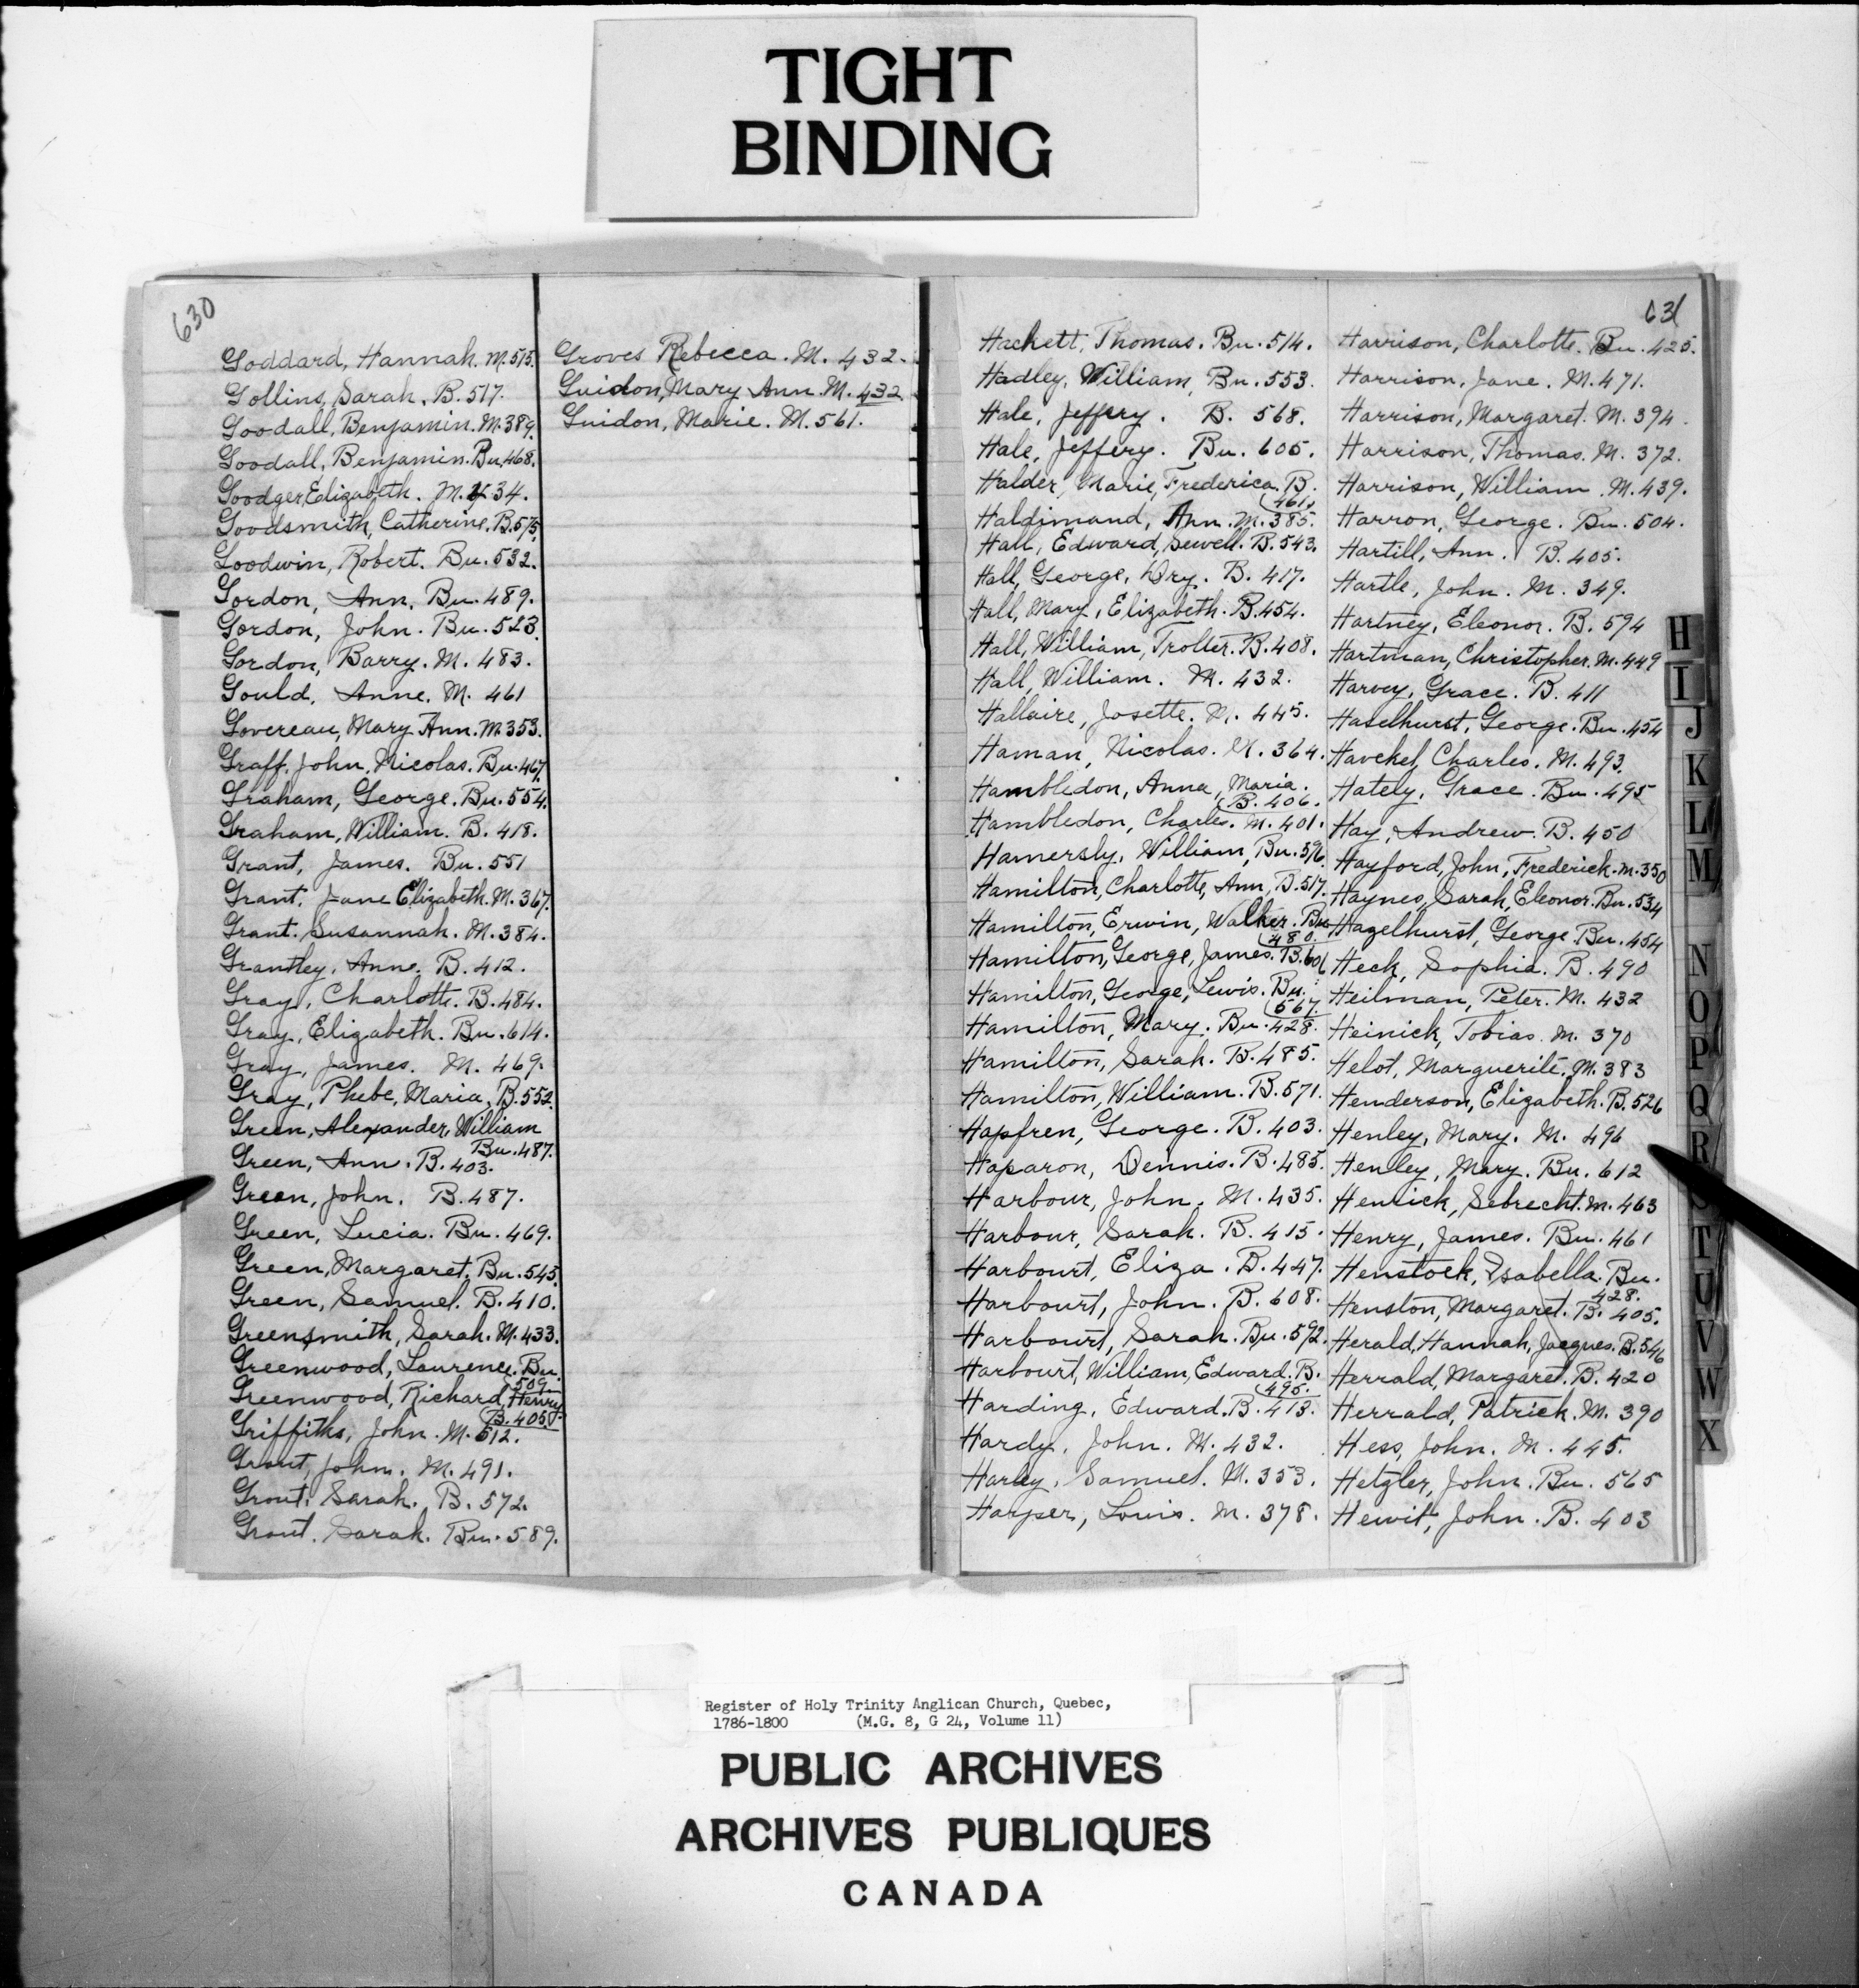 TIGHT
BINDING
630
Goddard, Hannah. M. 515.
Gollins, Sarah. B. 517.
Goodall, Benjamin. M. 389.
Goodall, Benjamin. Bu. 468.
Goodger, Elizabeth. M. 434.
Goodsmith, Catherine. B. 575.
Goodwin, Robert. Bu. 532.
Gordon, Ann. Bu. 489.
Gordon, John. Bu. 523.
Gordon, Barry. M. 483.
Gould, Anne. M. 461
Govereau, Mary Ann. M. 353.
Graff, John, Nicolas. Bu. 467.
Graham, George. Bu. 554.
Graham, William. B. 418.
Grant, James. Bu. 551
Grant, Jane Elizabeth. M. 367.
Grant. Susannah. M. 384.
Grantley, Anne. B. 412.
Gray, Charlotte. B. 484.
Gray, Elizabeth. Bu. 614.
Gray, James. M. 469.
Gray, Phebe, Maria, B. 552.
Green, Alexander, William
Bu. 487.
Green, Ann. B. 403.
Green, John. B. 487.
Green, Lucia. Bu. 469.
Green, Margaret. Bu. 545.
Green, Samuel. B. 410.
Greensmith, Sarah. M. 433.
Greenwood, Laurence. Bu.
509.
Greenwood, Richard, Henry
B. 405.
Griffiths, John. M. 512.
Grout, John. M. 491.
Grout, Sarah. B. 572.
Grout. Sarah. Bu. 589.
Groves Rebecca. M. 432.
Guidon, Mary Ann. M. 432.
Guidon, Marie. M. 561.
631
Hackett, Thomas. Bu. 514.
Hadley, William, Bu. 553.
Hale, Jeffery. B. 568.
Hale, Jeffery. Bu. 605.
Halder, Marie, Frederica. B.
461.
Haldimand, Ann. M. 385.
Hall, Edward, Sewell. B. 543.
Hall, George, Dry. B. 417.
Hall, Mary, Elizabeth. B. 454.
Hall, William, Trotter. B. 408.
Hall, William. M. 432.
Hallaire, Josette. M. 445.
Haman, Nicolas. M. 364.
Hambledon, Anna, Maria.
B. 406.
Hambledon, Charles. M. 401.
Hamersly, William, Bu. 596.
Hamilton, Charlotte, Ann, B. 517.
Hamilton, Erwin, Walker. Bu
480.
Hamilton, George, James. B. 601
Hamilton, George, Lewis. Bu.
567.
Hamilton, Mary. Bu. 428.
Hamilton, Sarah. B. 485.
Hamilton, William. B. 571.
Hapfren, George. B. 403.
Haparon, Dennis. B. 485.
Harbour, John. M. 435.
Harbour, Sarah. B. 415.
Harbourt, Eliza. B. 447.
Harbourt, John. B. 608.
Harbourt, Sarah. Bu. 592.
Harbourt, William, Edward. B.
495.
Harding, Edward. B. 413.
Hardy, John. M. 432.
Harley, Samuel. M. 353.
Harper, Louis. M. 378.
Harrison, Charlotte. Bu. 425.
Harrison, Jane. M. 471.
Harrison, Margaret. M. 394.
Harrison, Thomas. M. 372.
Harrison, William. M. 439.
Harron, George. Bu. 504.
Hartill, Ann. B. 405.
Hartle, John. M. 349.
Hartney, Eleonor. B. 594
Hartman, Christopher. M. 449
Harvey, Grace. B. 411
Haselhurst, George. Bu. 454
Havekel, Charles. M. 493.
Hately, Grace. Bu. 495
Hay, Andrew. B. 450
Hayford, John, Frederick. M. 350
Haynes, Sarah, Eleonor. Bu. 534
Hazelhurst, George. Bu. 454
Heck, Sophia. B. 490
Heilman, Peter. M. 432
Heinick, Tobias. M. 370
Helot, Marguerite. M. 383
Henderson, Elizabeth. B. 526
Henley, Mary. M. 496
Henley, Mary. Bu. 612
Henrick, Sebrecht. M. 463
Henry, James. Bu. 461
Henstock, Isabella. Bu.
428.
Henston, Margaret. B. 405.
Herald, Hannah, Jacques. B. 546
Herrald, Margaret. B. 420
Herrald, Patrick. M. 390
Hess, John. M. 445.
Hetzler, John. Bu. 565
Hewit, John. B. 403
H
I
J
K
L
M
N
O
P
Q
R
S
T
U
V
W
X
Register of Holy Trinity Anglican Church, Quebec,
1786-1800 (M.G. 8, G 24, Volume 11)
PUBLIC ARCHIVES
ARCHIVES PUBLIQUES
CANADA